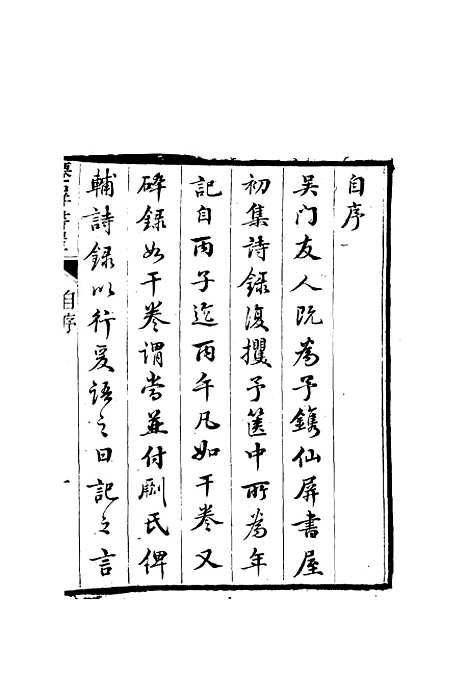 自序
吴门友人既為予鐫仙屏書屋
初集詩錄復攫予篋中所為年
記自丙子迄丙午凡如干卷又
碎錄如干卷謂當並付劂氏俾
輔詩錄以行爰語之曰記之言
自序
一